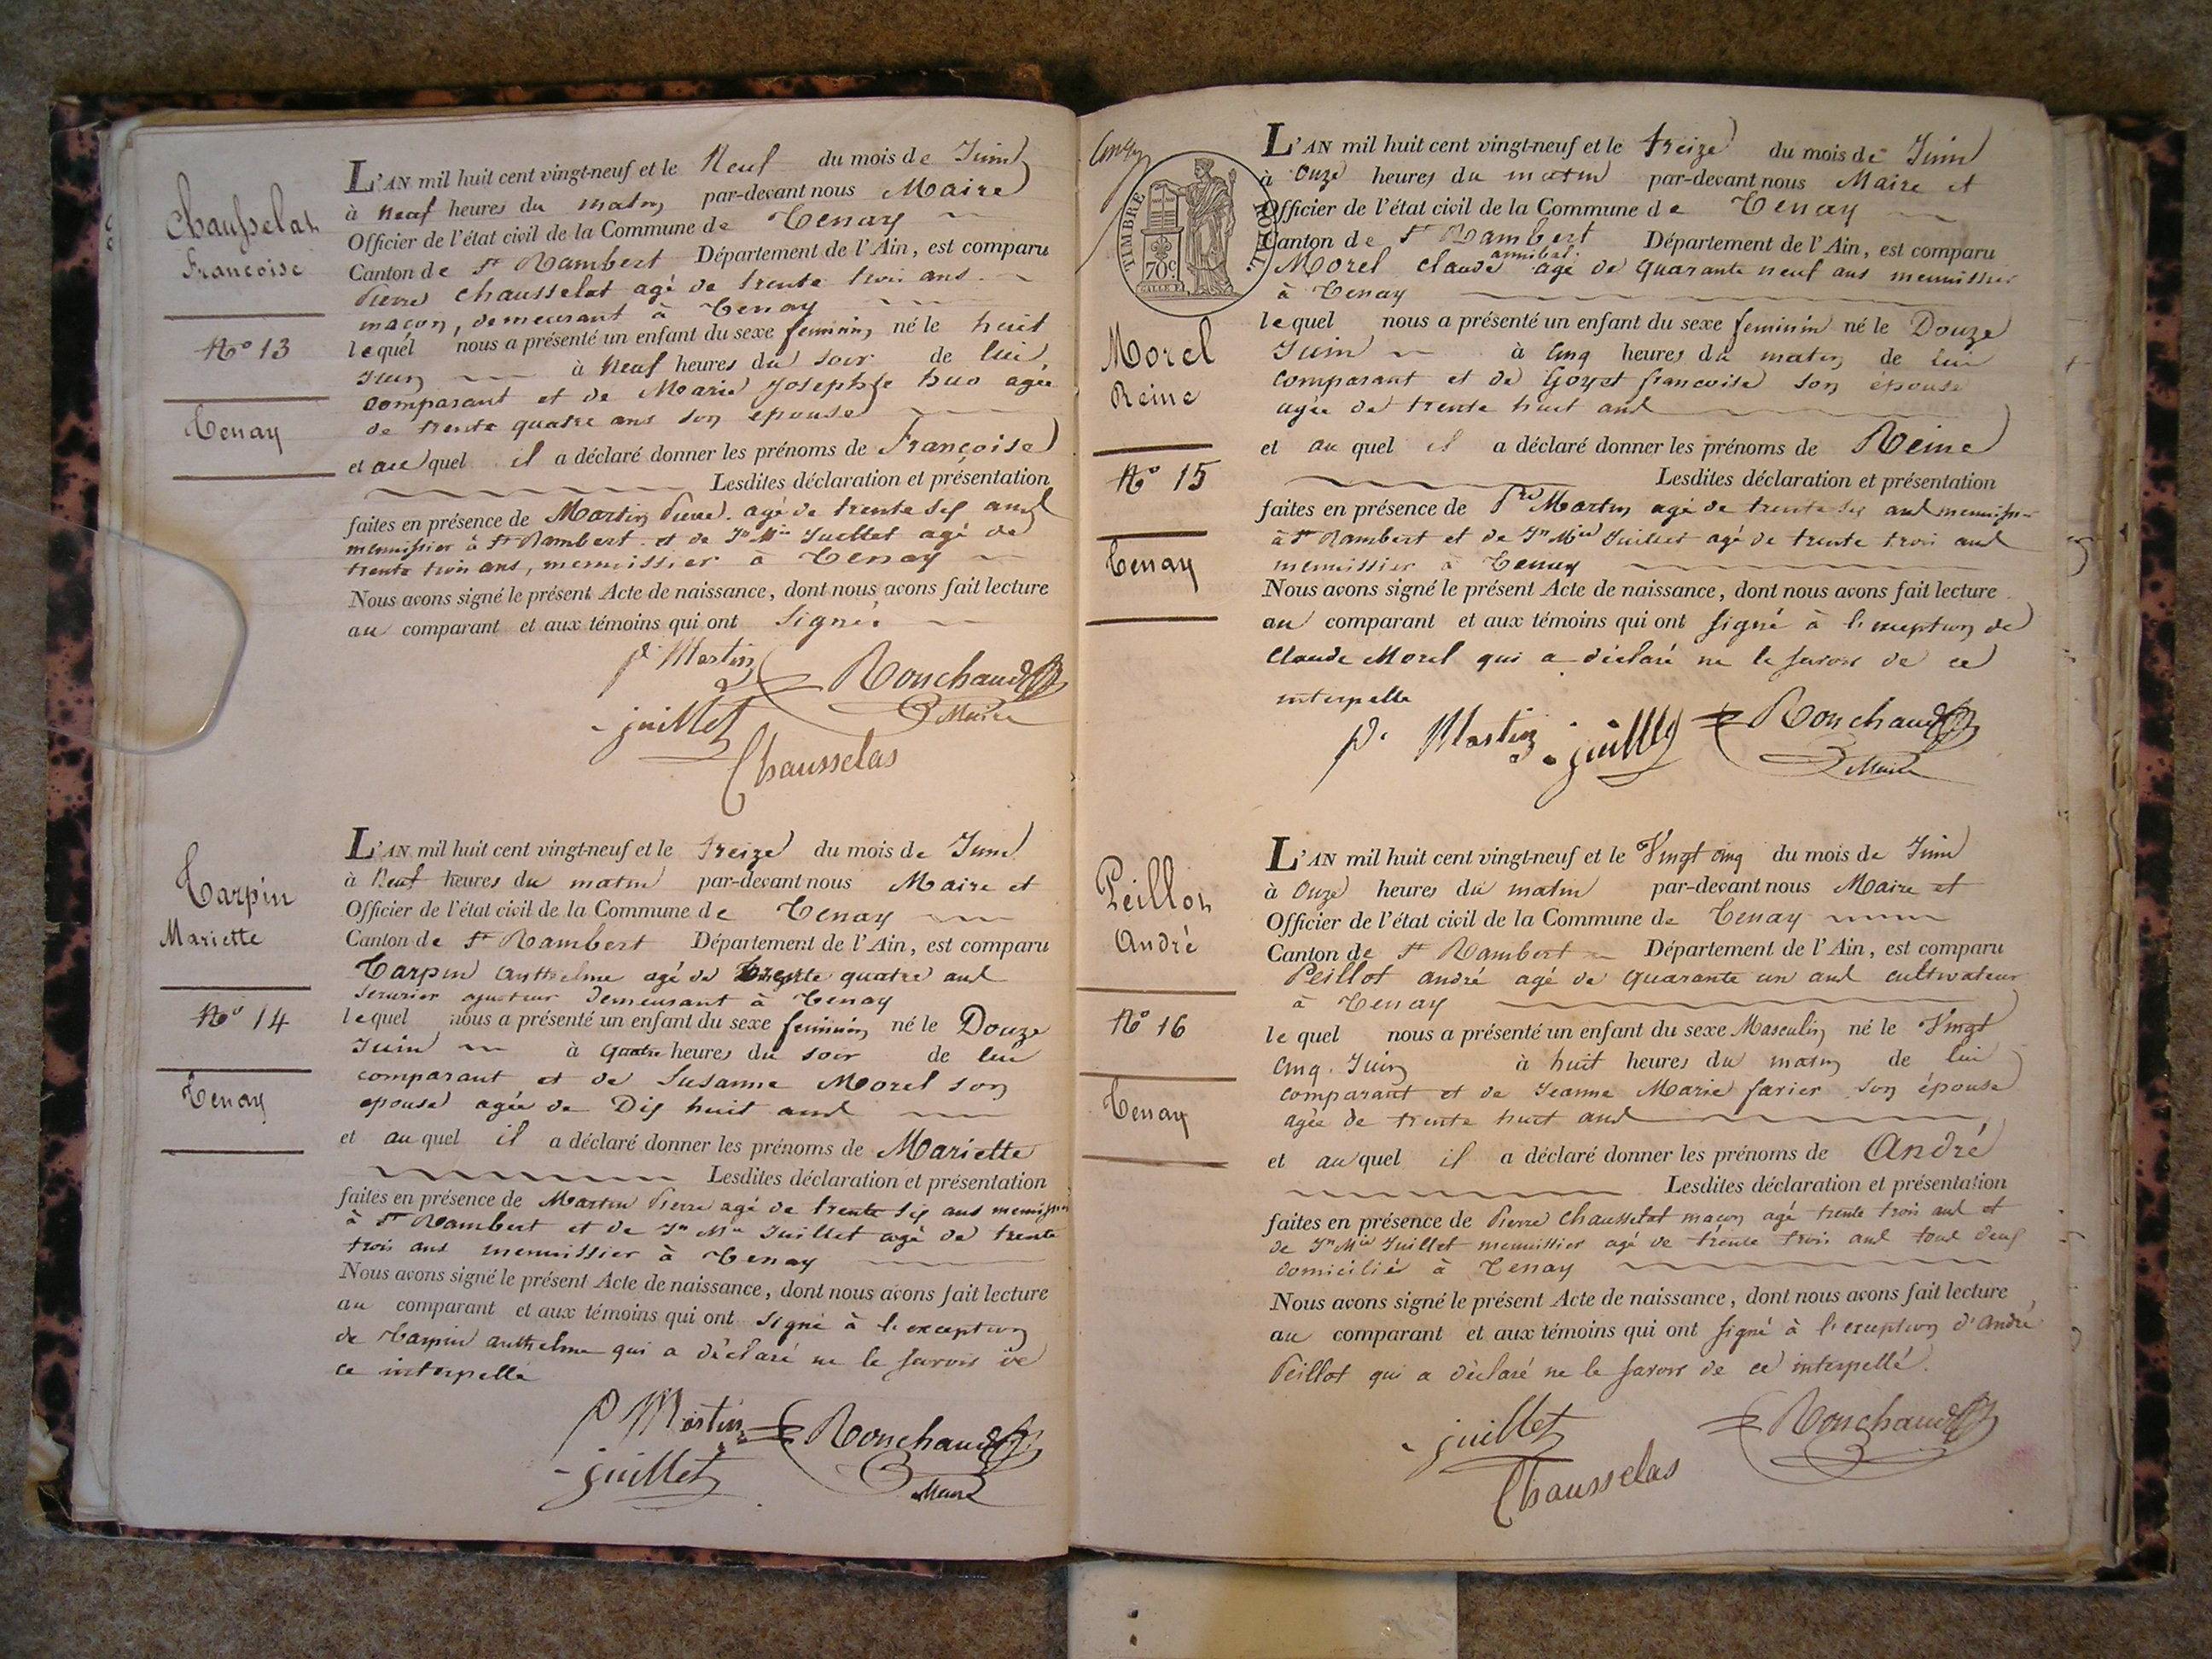 Chausselat
Françoise
N° 13
Tenay
L'AN mil huit cent vingt-neuf et le Neuf du mois de Juin
à Neuf heures du matin par-devant nous Maire
Officier de l'état civil de la Commune de Tenay
Canton de St Rambert Département de l'Ain, est comparu
Pierre Chausselat agé de trente trois ans
maçon, demeurant à Tenay
lequel nous a présenté un enfant du sexe feminin né le huit
Juin à Neuf heures du soir de lui
comparant et de Marie Josephte huo agée
de trente quatre ans son epouse
et au quel il a déclaré donner les prénoms de Françoise
Lesdites déclaration et présentation
faites en présence de Martin Pierre agé de trente six ans
menuissier à St Rambert et de Jn Mie Juillet agé de
trente trois ans, menuissier à Tenay
Nous avons signé le présent Acte de naissance, dont nous avons fait lecture
au comparant et aux témoins qui ont signé.
p. Martin
Ronchaud
Maire
juillet
Chausselas
Tarpin
Mariette
N° 14
Tenay
L'AN mil huit cent vingt-neuf et le treize du mois de Juin
à Neuf heures du matin par-devant nous Maire et
Officier de l'état civil de la Commune de Tenay
Canton de St Rambert Département de l'Ain, est comparu
Tarpin Anthelme agé de trente quatre ans
serurier ajusteur demeurant à Tenay
lequel nous a présenté un enfant du sexe feminin né le Douze
Juin à quatre heures du soir de lui
comparant et de Susanne Morel son
epouse agée de Dix huit ans
et au quel il a déclaré donner les prénoms de Mariette
Lesdites déclaration et présentation
faites en présence de Martin Pierre agé de trente six ans menuissier
à St Rambert et de Jn Mie Juillet agé de trente
trois ans menuissier à Tenay
Nous avons signé le présent Acte de naissance, dont nous avons fait lecture
au comparant et aux témoins qui ont signé à l'exception
de Tarpin anthelme qui a déclaré ne le savoir de
ce interpellé
P Martin
Ronchaud
Maire
juillet
TIMBRE ROYAL
70c
Morel
Reine
N° 15
Tenay
L'AN mil huit cent vingt-neuf et le treize du mois de Juin
à Onze heures du matin par-devant nous Maire et
Officier de l'état civil de la Commune de Tenay
Canton de St Rambert Département de l'Ain, est comparu
annibal
Morel claude agé de quarante neuf ans menuissier
à Tenay
lequel nous a présenté un enfant du sexe feminin né le Douze
Juin à Cinq heures du matin de lui
comparant et de Goyet francoise son épouse
agée de trente huit ans
et au quel il a déclaré donner les prénoms de Reine
Lesdites déclaration et présentation
faites en présence de Pre Martin agé de trente six ans menuissier
à St Rambert et de Jn Mie Juillet agé de trente trois ans
menuissier à Tenay
Nous avons signé le présent Acte de naissance, dont nous avons fait lecture
au comparant et aux témoins qui ont signé à l'exception de
Claude Morel qui a déclaré ne le savoir de ce
interpelle
p. Martin
juillet
Ronchaud
Maire
Peillot
André
N° 16
Tenay
L'AN mil huit cent vingt-neuf et le Vingt cinq du mois de Juin
à Onze heures du matin par-devant nous Maire et
Officier de l'état civil de la Commune de Tenay
Canton de St Rambert Département de l'Ain, est comparu
Peillot andré agé de quarante un ans cultivateur
à Tenay
lequel nous a présenté un enfant du sexe Masculin né le Vingt
Cinq Juin à huit heures du matin de lui
comparant et de Jeanne Marie farier son épouse
agée de trente huit ans
et au quel il a déclaré donner les prénoms de André
Lesdites déclaration et présentation
faites en présence de Pierre Chausselat maçon agé trente trois ans et
de Jn Mie Juillet menuissier agé de trente trois ans tous deux
domicilié à Tenay
Nous avons signé le présent Acte de naissance, dont nous avons fait lecture
au comparant et aux témoins qui ont signé à l'exception d'André
Peillot qui a déclaré ne le savoir de ce interpellé.
juillet
Ronchaud
Chausselas